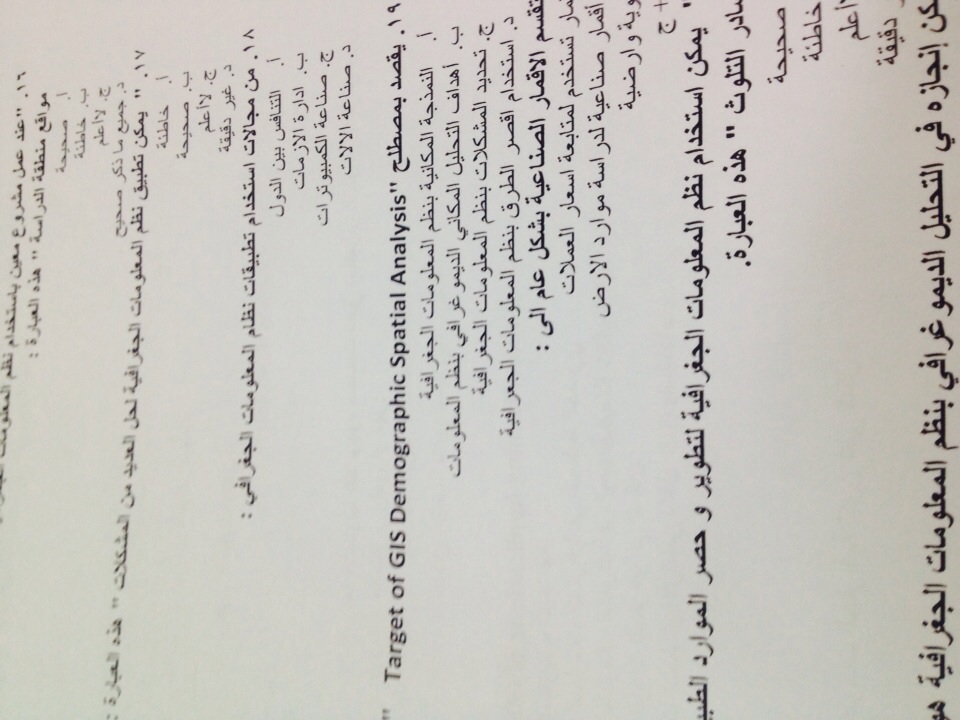 ١٦. "عند عمل مشروع معين باستخدام نظم المعلومات
مواقع منطقة الدراسة " هذه العبارة :
أ. صحيحة
ب. خاطئة
ج. لااعلم
د. جميع ما ذكر صحيح
١٧. " يمكن تطبيق نظم المعلومات الجغرافية لحل العديد من المشكلات " هذه العبارة :
أ. خاطئة
ب. صحيحة
ج. لااعلم
د. غير دقيقة
١٨. من مجالات استخدام تطبيقات نظام المعلومات الجغرافي :
أ. التنافس بين الدول
ب. ادارة الازمات
ج. صناعة الكمبيوترات
د. صناعة الالات
١٩. يقصد بمصطلح "Target of GIS Demographic Spatial Analysis"
أ. النمذجة المكانية بنظم المعلومات الجغرافية
ب. أهداف التحليل المكاني الديموغرافي بنظم المعلومات
ج. تحديد المشكلات بنظم المعلومات الجغرافية
د. استخدام اقصر الطرق بنظم المعلومات الجغرافية
تقسم الاقمار الصناعية بشكل عام الى :
تستخدم لمتابعة اسعار العملات
أقمار صناعية لدراسة موارد الارض
وارضية
+ ج
" يمكن استخدام نظم المعلومات الجغرافية لتطوير و حصر الموارد
التلوث " هذه العبارة.
صحيحة
خاطئة
دقيقة
إنجازه في التحليل الديموغرافي بنظم المعلومات الجغرافية